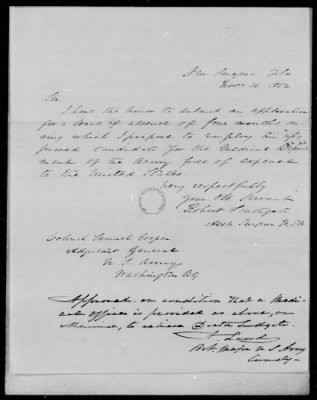 Novr 16. 1852
Sir
I have the honor to submit an application
for a leave of absence of four months, du-
ring which I propose to employ an ap-
proved candidate for the Medical Depart-
ment of the Army free of expense
to the United States.
Very respectfully
Your Obt. Servant
Robert Southgate
Asst Surgeon U.S.A.
Colonel Samuel Cooper
Adjutant General
U.S. Army
Washington City
Approved on condition that a Medi-
cal officer is provided as above, or
to relieve Doctor Southgate.
Bvt. Major U S Army